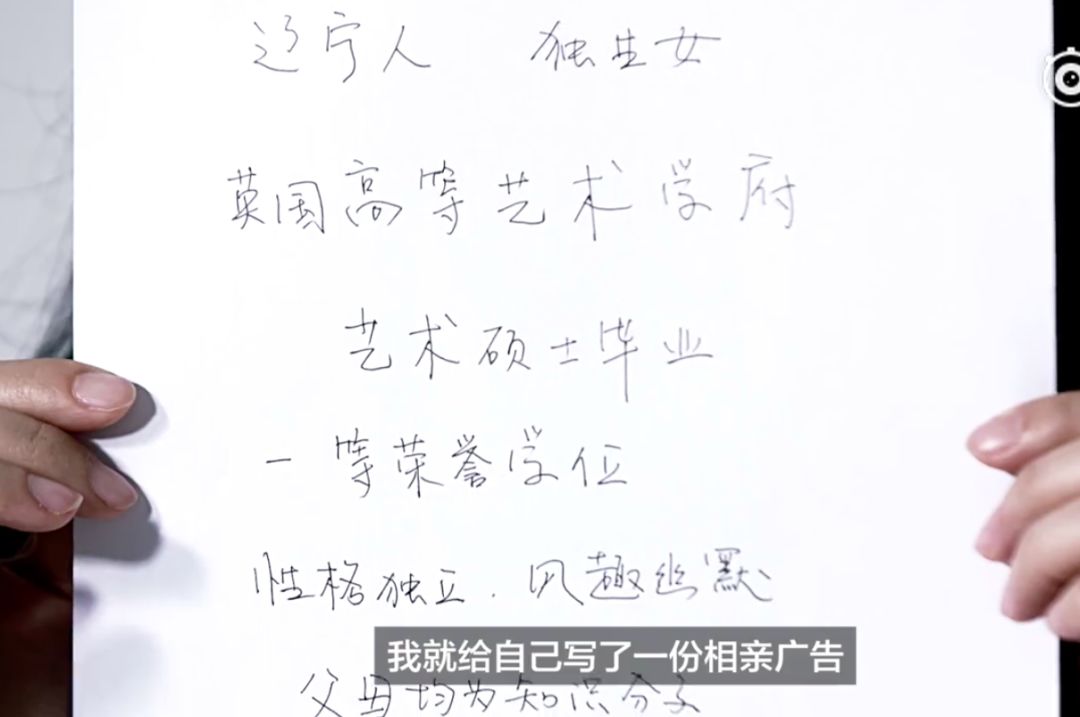 辽宁人 独生女
英国高等艺术学府
艺术硕士毕业
一等荣誉学位
性格独立.风趣幽默
我就给自己写了一份相亲广告
父母均为知识分子